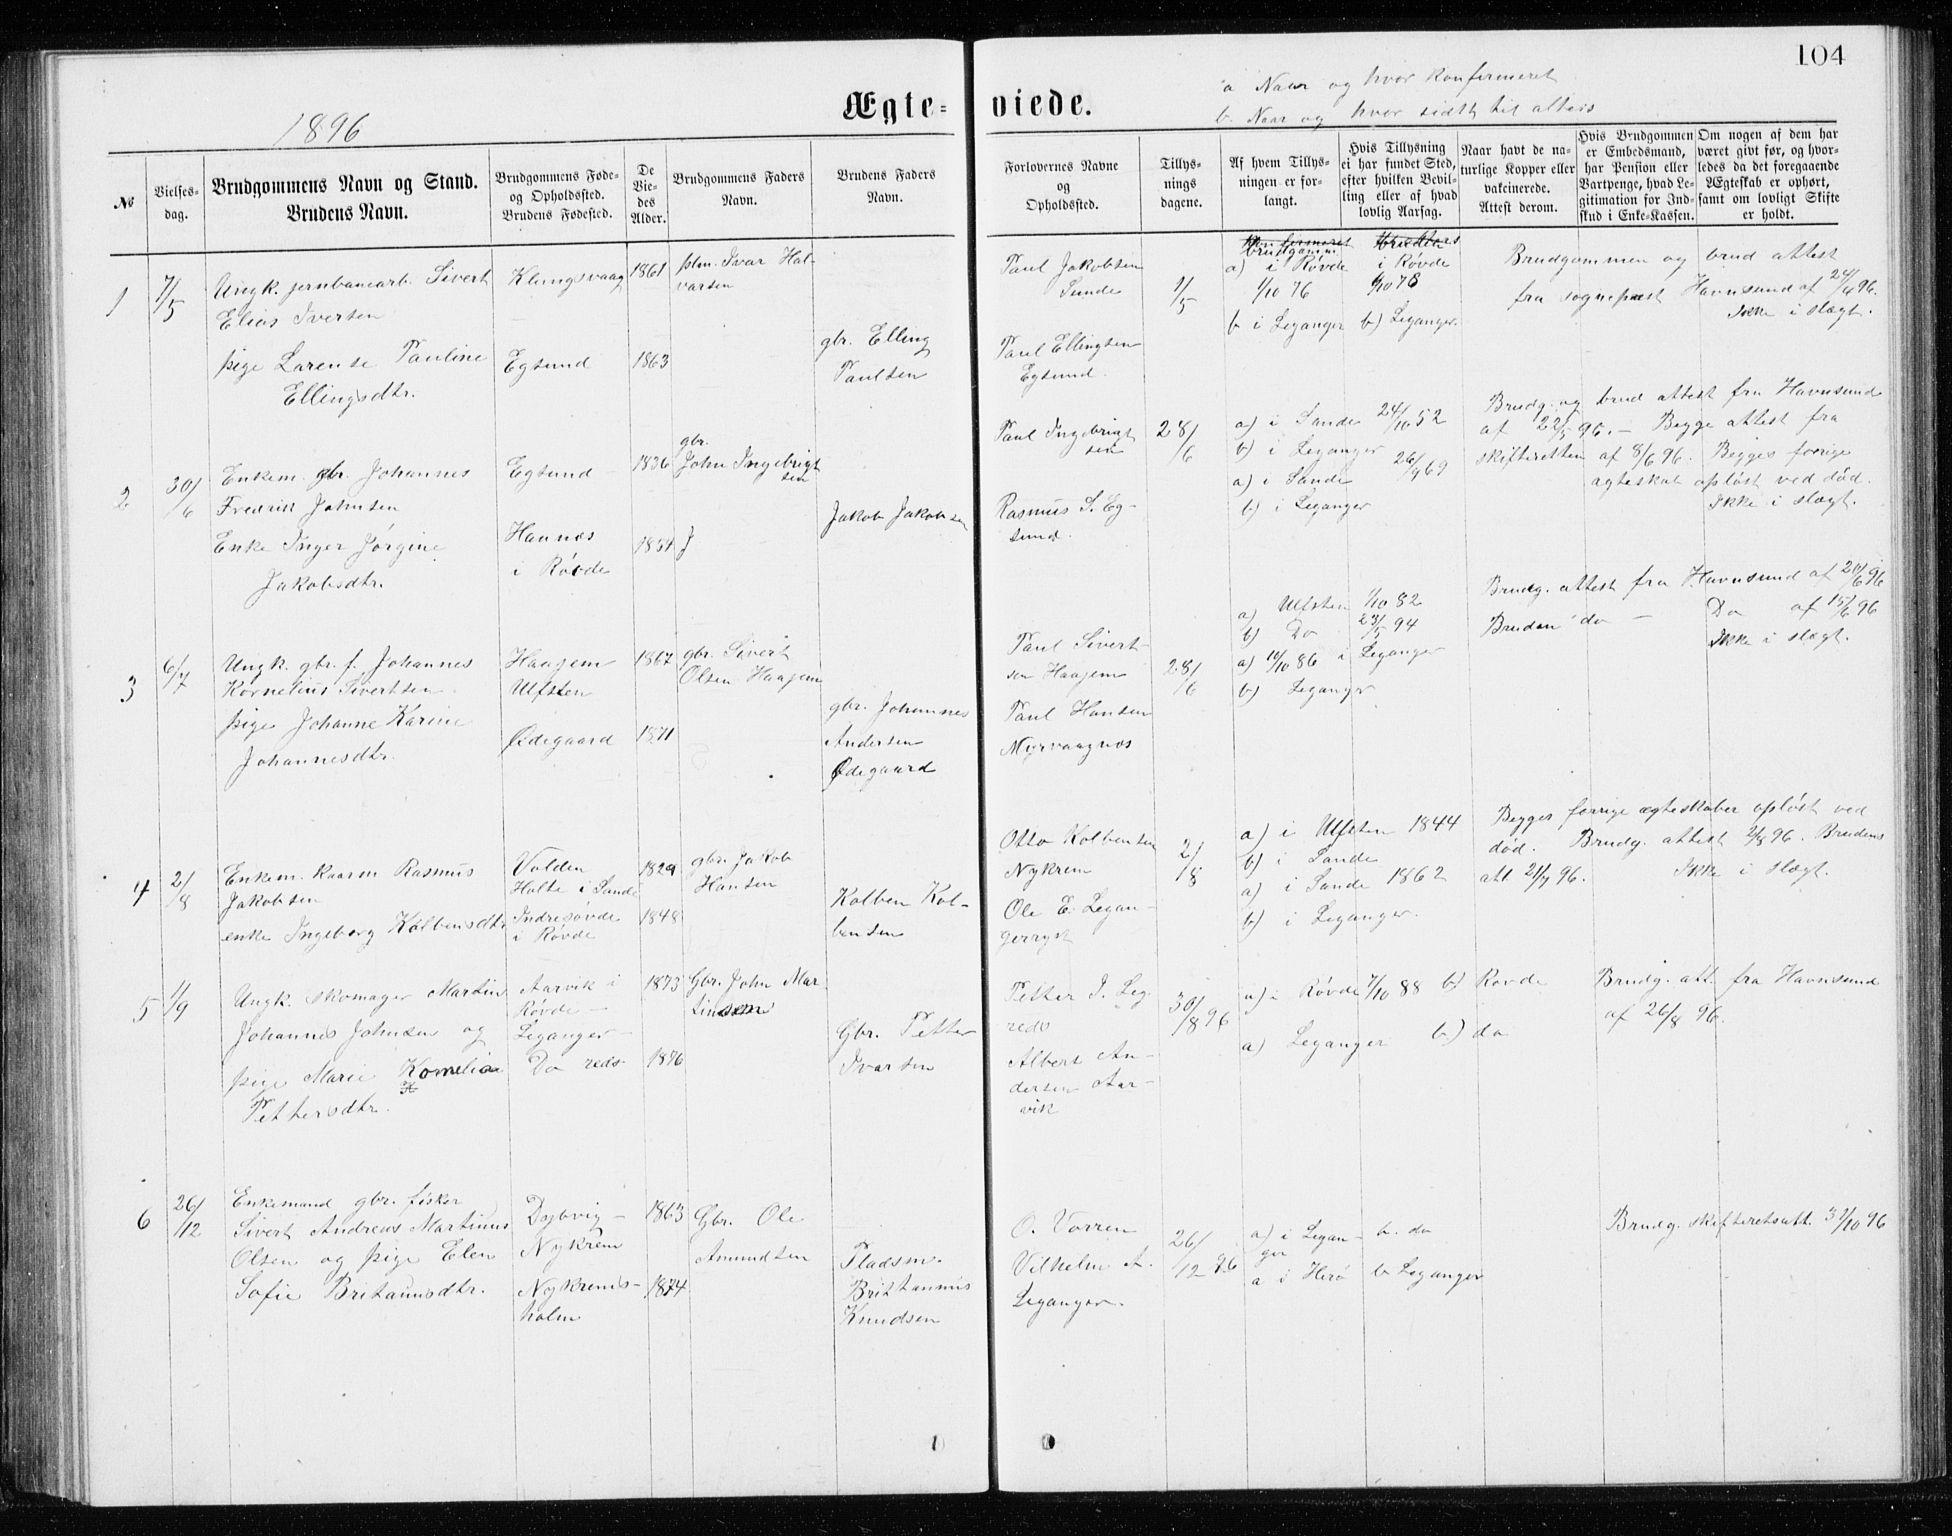 104
Ægteviede.
1896
a Naar og hvor konfirmeret
b. Naar og hvor sidst til alters
№
Vielsesdag.
Brudgommens Navn og Stand.
Brudens Navn.
Brudgommens Føde-
og Opholdssted.
Brudens Fødested.
De
Vie-
des
Alder.
Brudgommens Faders
Navn.
Brudens Faders
Navn.
Forlovernes Navne
og
Opholdssted.
Tillys-
nings
dagene.
Af hvem Tillys-
ningen er for-
langt.
Hvis Tillysning
ei har fundet Sted,
efter hvilken Bevil-
ling eller af hvad
lovlig Aarsag.
Naar havt de na-
turlige Kopper eller
vakcinerede.
Attest derom.
Hvis Brudgommen
er Embedsmand,
har Pension eller
Vartpenge, hvad Le-
gitimation for Ind-
skud i Enke-Kassen.
Om nogen af dem har
været givt før, og hvor-
ledes da det foregaaende
Ægteskab er ophørt,
samt om lovligt Skifte
er holdt.
1
7/5
Ungk. jernbanearb. Sivert
Elias Iversen
pige Larense Pauline
Ellingsdtr.
Klungsvaag
Egsund
1861
1863
plm. Ivar Hal-
varsen
gbr. Elling
Paulsen
Paul Jakobsen
Sunde
Paul Ellingsen
Egsund.
1/5
brudgomm
a) i Røvde
1/10 76
b i Leganger
i Røvde
1/10 78
b) Leganger.
Brudgommen og brud attest
fra sogneprest Havnsund af 24/4 96.
Ikke i slægt.
2
30/6
Enkem. gbr. Johannes
Fredrik Johnsen
Enke Inger Jørgine
Jakobsdtr.
Egsund
Haunæs
i Røvde
1836
1834
gbr.
John Ingebrigt
sen
Jakob Jakobsen
Paul Ingebrigt
sen
Rasmus S. Eg-
sund.
28/6
a) i Sande 24/10 52
b) i Leganger
a) i Sande 26/9 69
b) i Leganger
Brudg. og brud attest fra Havnsund
af 22/5 96. — Begge attest fra
skifteretten af 8/6 96. Begges forrige
ægteskab opløst ved død.
Ikke i slægt.
3
6/7
Ungk. gbr. f. Johannes
Kornelius Sivertsen
pige Johanne Karine
Johannesdtr.
Haagem
Ulfsten
Ødegaard
1867
1871
gbr. Sivert
Olsen Haagem
gbr. Johannes
Andersen
Ødegaard
Paul Sivert-
sen Haagem
Paul Hansen
Myrvaagnes
28/6
a) Ulfsten 1/10 82
b) Do 23/5 94
a) 10/10 86 i Leganger
b) Leganger
Brudg. attest fra Havnsund af 20/6 96
Bruden do — Do af 15/6 96
Ikke i slægt.
4
2/8
Enkem. kaarm Rasmus
Jakobsen
enke Ingeborg Kolbensdtr
Volden
Holte i Sande
Indresøvde
i Røvde
1829
1848
gbr. Jakob
Hansen
Kolben Kol-
bensen
Otto Kolbensen
Nykrem
Ole E. Legan-
gerryst
2/8
a) i Ulfsten 1844
b) i Sande
a) i Sande 1862
b) i Leganger.
Begges forrige ægteskaber opløst ved
død. Brudg. attest 2/8 96. Brudens
att 21/7 96. Ikke i slægt.
5
1/9
Ungk. skomager Martin
Johannes Johnsen og
pige Marie Kornelia
Pettersdtr.
Aarvik i
Røvde —
Leganger —
Do reds
1873
1876
Gbr. John Mar
tinsen
Gbr. Petter
Ivarsen
Petter I. Leg.
reds
Albert An-
dersen Aar-
vik
30/8 96
a) i Røvde 7/10 88 b) Røvde
a) Leganger b) do
Brudg. att. fra Havnsund
af 26/8 96.
6
26/12
Enkemand gbr. fisker
Sivert Andreas Martinus
Olsen og pige Elen
Sofie Britanusdtr.
Dybvig —
Nykrem
Nykrems-
holm
1863
1874
Gbr. Ole
Amundsen
Pladsm.
Brittannus
Knudsen
O. Vorren
Vilhelm A.
Leganger.
26/12 96
a) i Legan-
ger
b. do
a i Herø b Leganger
Brudg. skifteretsatt. 31/10 96